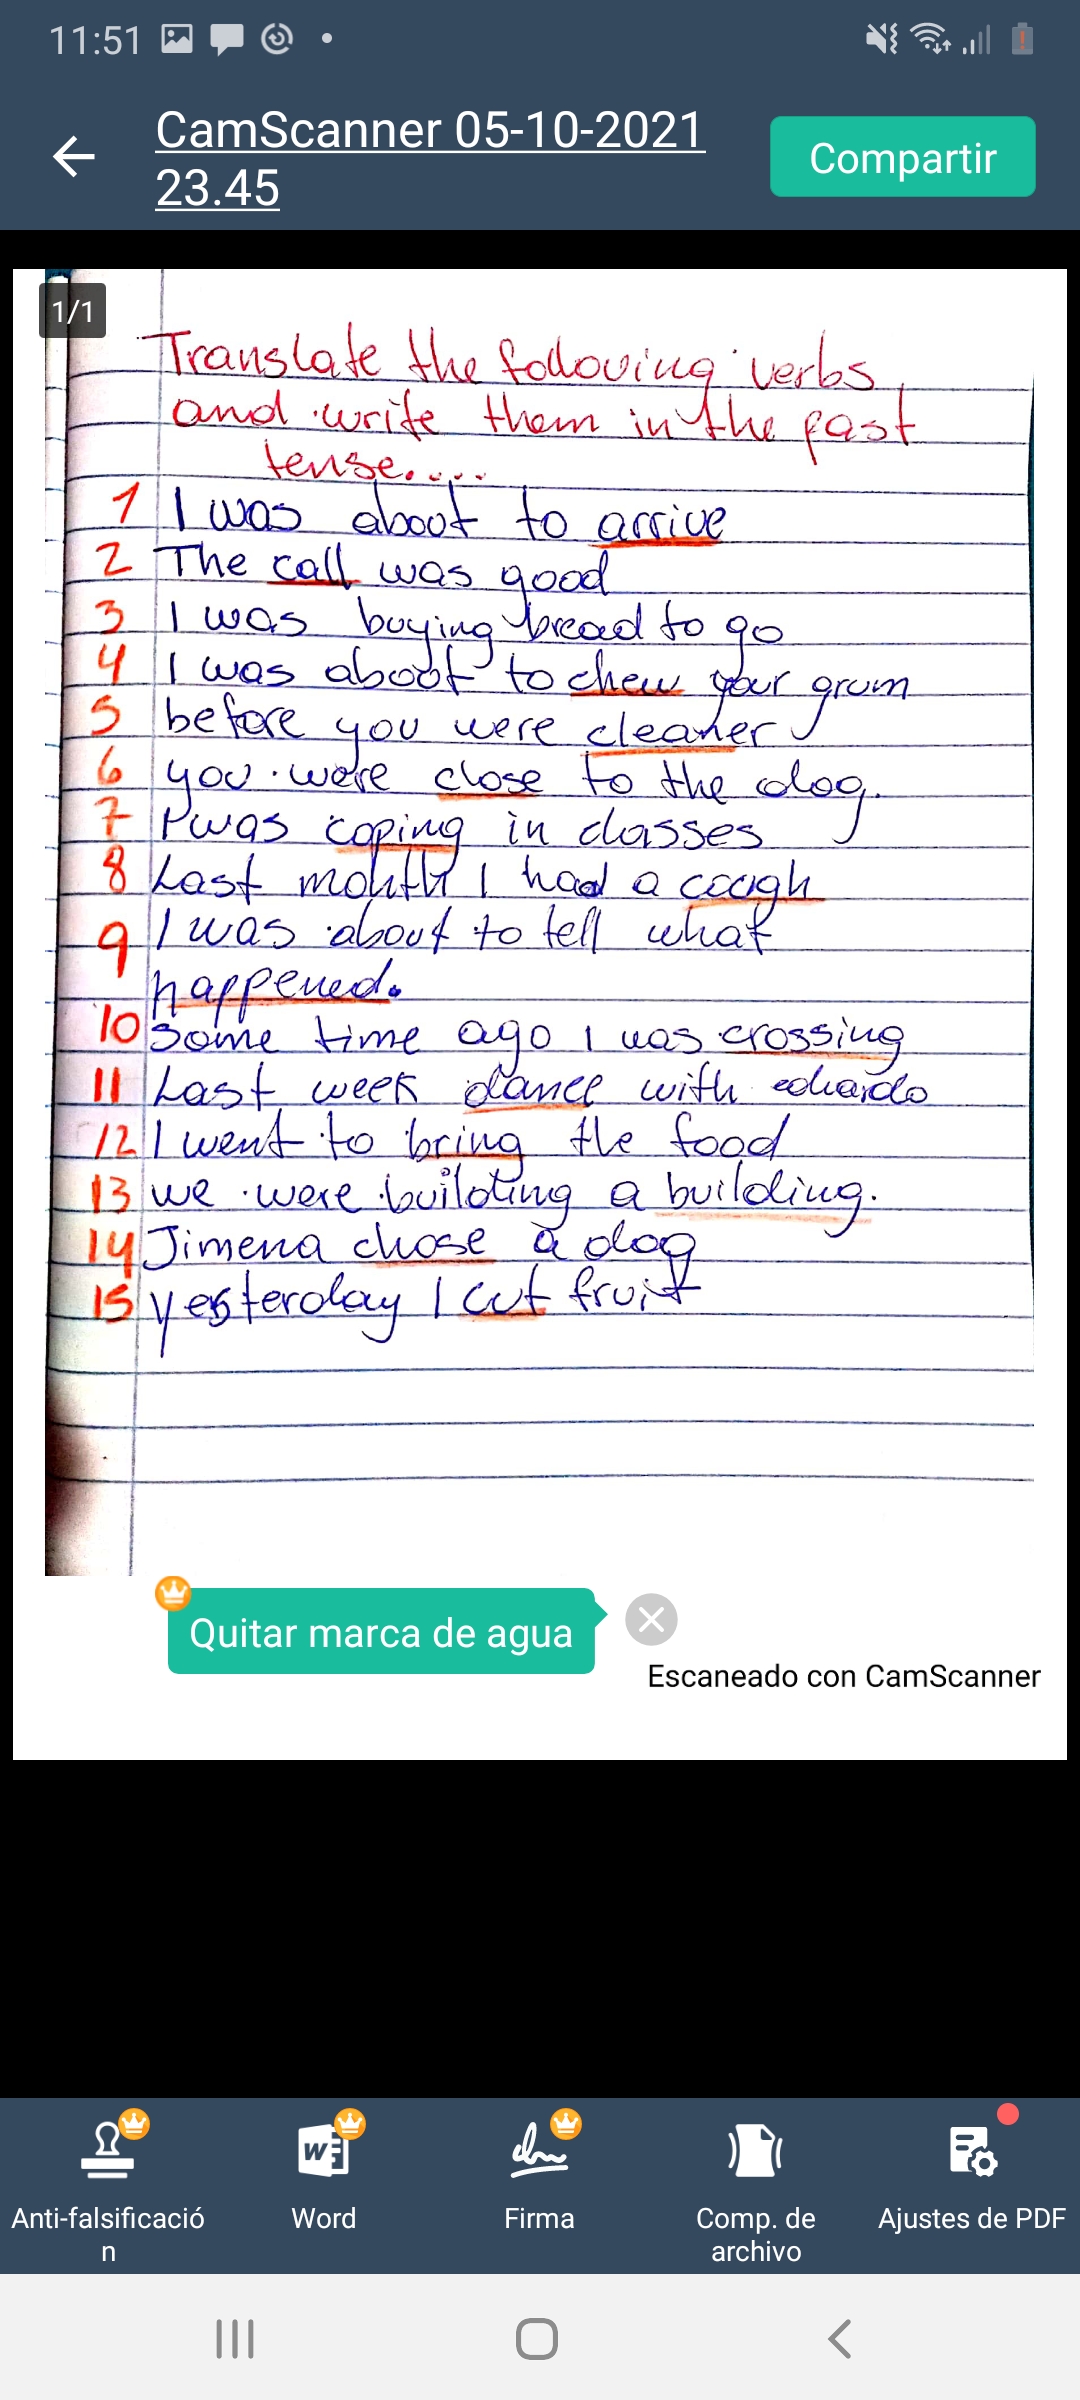 11:51
CamScanner 05-10-2021
23.45
Compartir
1/1
Translate the following verbs
and write them in the past
tense....
1 I was about to arrive
2 The call was good
3 I was buying bread to go
4 I was about to chew your grum
5 before you were cleaner
6 you were close to the dog.
7 I was coping in classes
8 Last month I had a cough
9 I was about to tell what
happened.
10 some time ago I was crossing
11 Last week dance with eduardo
12 I went to bring the food
13 we were building a building.
14 Jimena chose a dog
15 yesterday I cut fruit
Quitar marca de agua
Escaneado con CamScanner
Anti-falsificació
n
Word
Firma
Comp. de
archivo
Ajustes de PDF